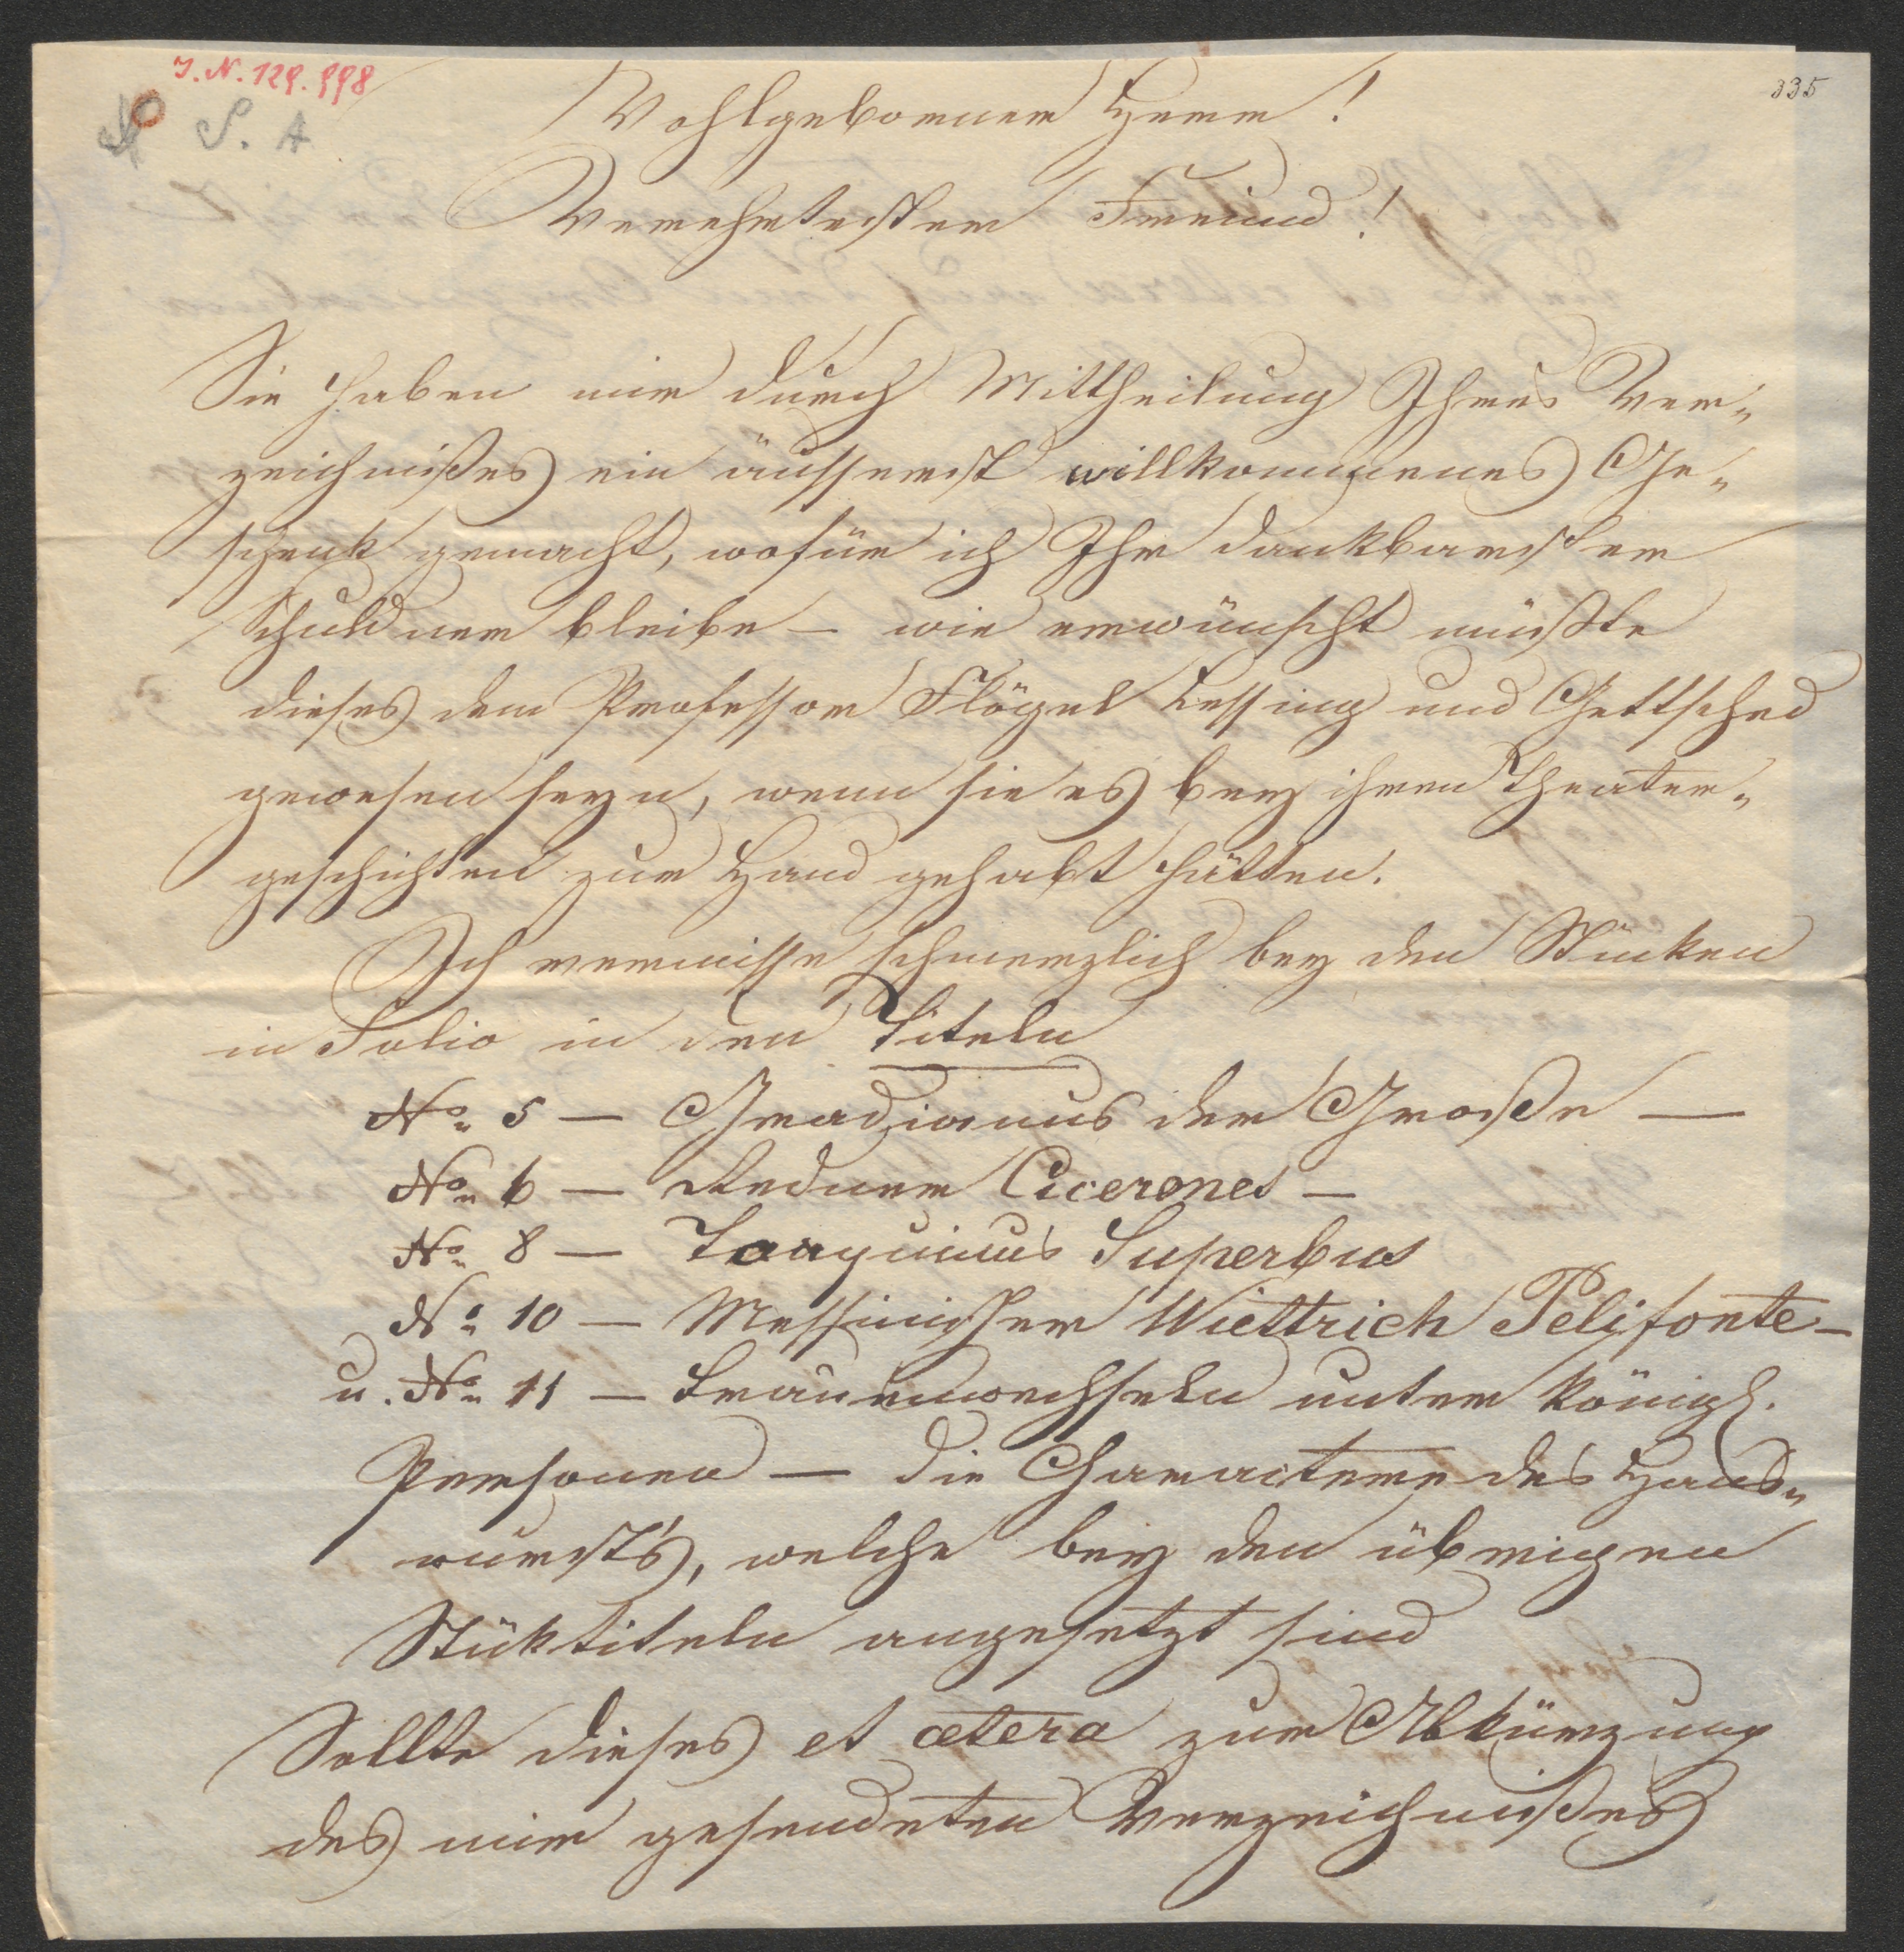 I.N. 129.998
335
S. A
Wohlgeborner Herr!
Verehrtester Freund!
Sie haben mir durch Mittheilung Ihres Ver„
zeichnißes ein äusserst willkommenes Ge„
schenk gemacht, wofür ich Ihr dankbarster
Schuldner bleibe – wie erwünscht müßte
dieses dem Professor Flögel Lessing und Gottsched
gewesen seyn, wenn sie es bey ihren Theater„
geschichten zur Hand gehabt hätten.
Ich vermisse schmerzlich bey den Stücken
in Folio in den Titeln
No. 5 — Gradzianus der Große —
No. 6 — Redner Cicerones —
No. 8 — Tarquinus Superbus
No. 10 — Messinischer Wiettrich Pelifonte —
u. No. 11 — Frauenwechseln unter königl.
Personen — die Charactere des Hans„
wursts, welche bey den übrigen
Stüktiteln angesetzt sind
Sollte dieses et cetera zur Abkürzung
des mir gesendeten Verzeichnißes